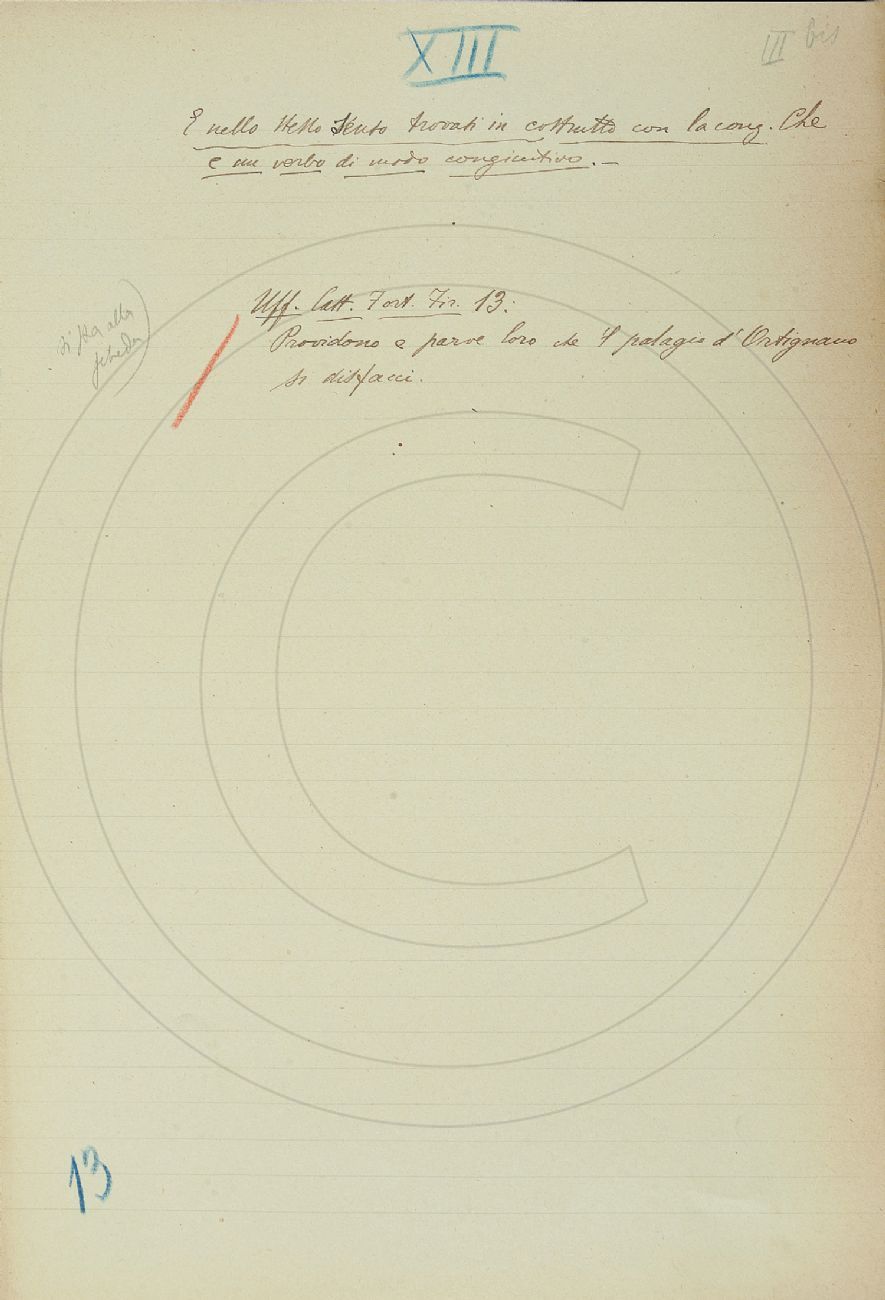 XIII
III bis
E nello stesso senso trovasi in costrutto con la cong. Che
e un verbo di modo congiuntivo. —
Uff. Cast. Fort. Fir. 13:
Providono e parve loro che 'l palagio d'Ortignano
si disfacci.
alla
scheda
13